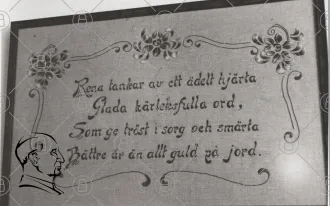 Rena tankar av ett ädelt hjärta
Glada kärleksfulla ord,
Som ge tröst i sorg och smärta
Bättre är än allt guld på jord.